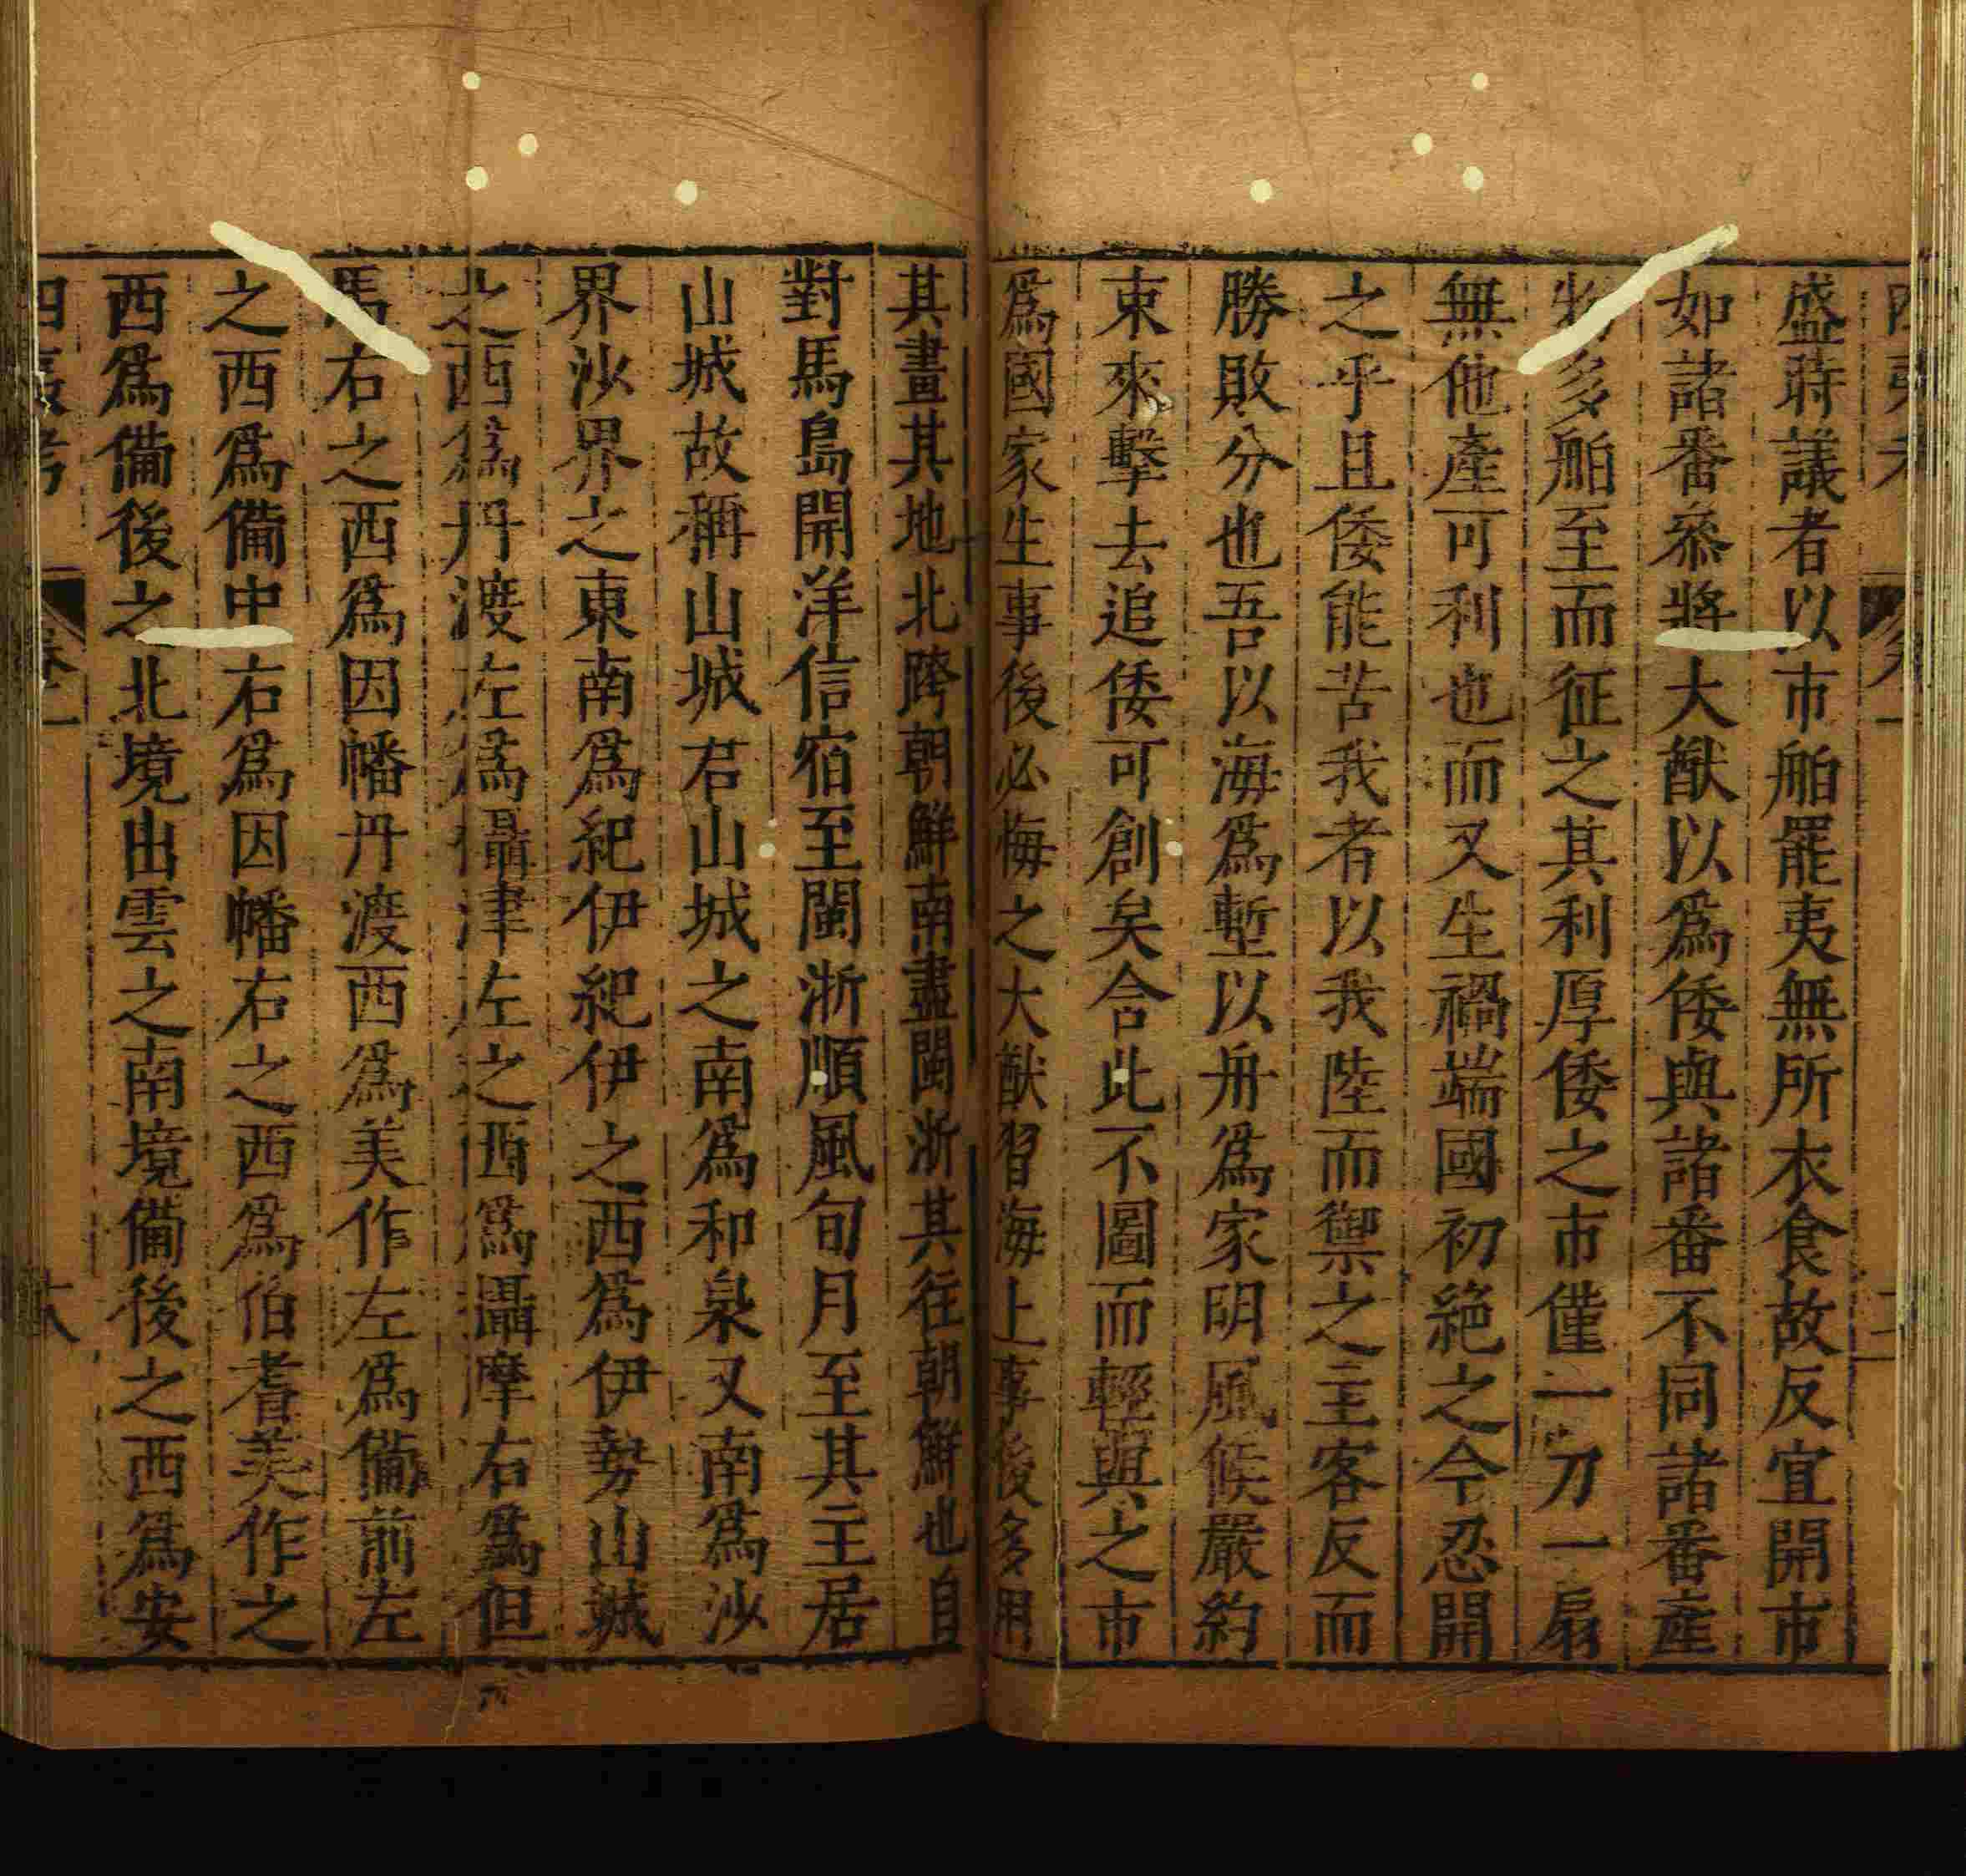 盛時議者以市舶罷夷無所衣食故反宜開市
如諸番叅將大猷以爲倭與諸番不同諸番產
物多舶至而征之其利厚倭之市僅一刀一扇
無他產可利也而又生禍端國初絶之今忍開
之乎且倭能苦我者以我陸而禦之主客反而
勝敗分也吾以海爲塹以舟爲家明風候嚴約
束來擊去追倭可創矣合此不圖而輕與之市
爲國家生事後必悔之大猷習海上事後多用
其畫其地北跨朝鮮南盡閩浙其往朝鮮也自
對馬島開洋信宿至閩浙順風旬月至其主居
山城故稱山城君山城之南爲和泉又南爲沙
界沙界之東南爲紀伊紀伊之西爲伊勢山城
之西爲丹渡左爲攝津左之西爲攝摩右爲但
馬右之西爲因幡丹渡西爲美作左爲備前左
之西爲備中右爲因幡右之西爲伯耆美作之
西爲備後之北境出雲之南境備後之西爲安
四夷考 卷二 六